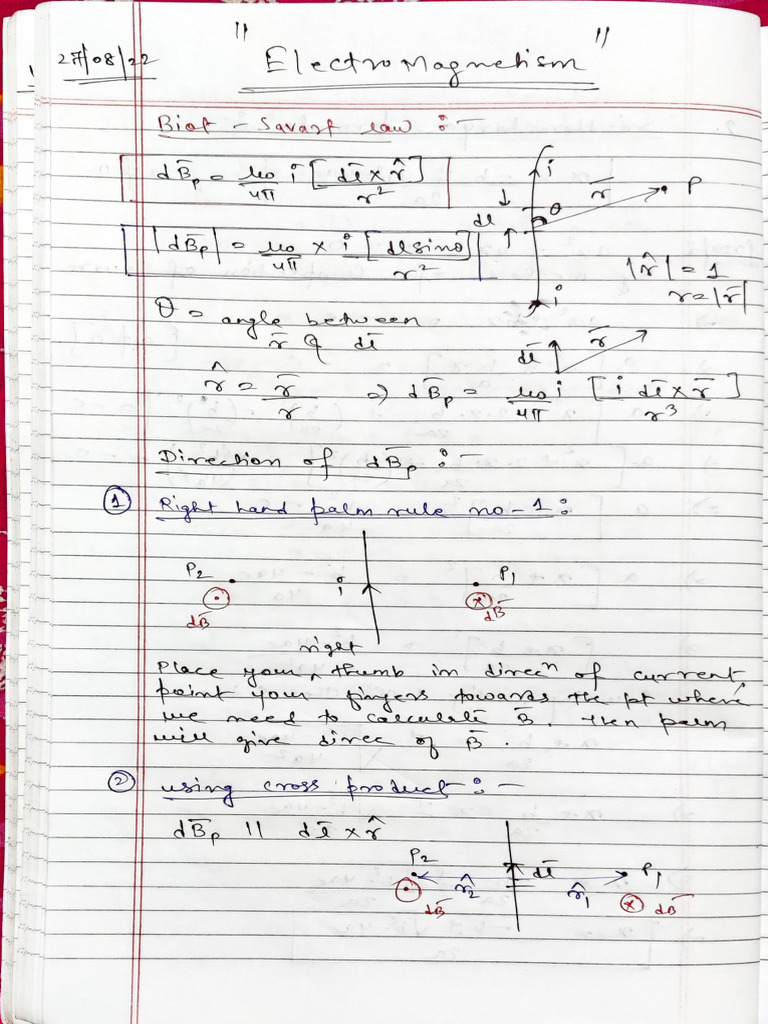 27/08/22
" ElectroMagnetism "
Biot - Savart law :-
dB̄p = μ₀/4π i [dl̄ × r̂]/r²
|dB̄p| = μ₀/4π × i [dl sinθ]/r²
i
r̄
P
θ
dl
i
|r̂| = 1
r = |r̄|
θ = angle between
r̄ & dl̄
dl̄
r̄
r̂ = r̄/r ⇒ dB̄p = μ₀i/4π [i dl̄ × r̄]/r³
Direction of dB̄p :-
① Right hand palm rule no-1 :
P₂ i P₁
dB̄ dB̄
Place your right thumb in direcⁿ of current,
point your fingers towards the pt where
we need to calculate B̄. Then palm
will give direc of B̄.
② using cross product :-
dB̄p || dl̄ × r̂
P₂ dl̄ P₁
r̂₂ r̂₁
dB̄ dB̄